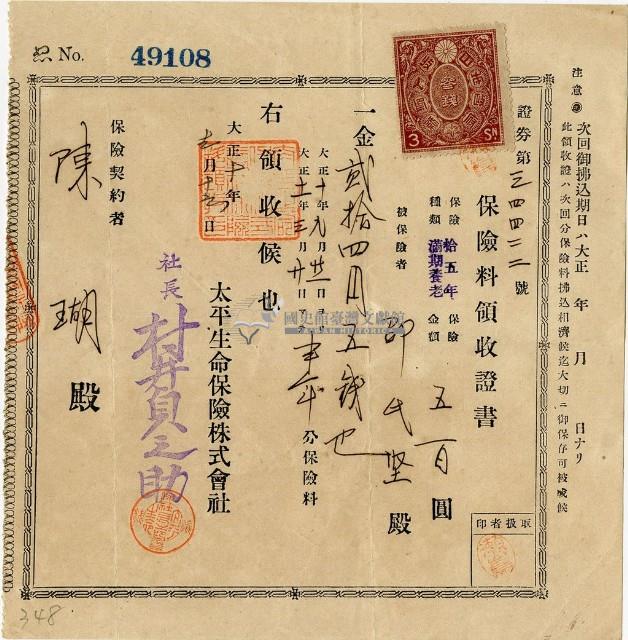 No. 49108
注意 次回御拂込期日ハ大正 年 月 日ナリ
此領收證ハ次回分保險料拂込相濟候迄大切ニ御保存可被成候
證券第三四四二二號
保險料領收證書
保險種類 拾五年滿期養老
保險金額 五百圓
被保險者 邱氏堅殿
一金貳拾四円五錢也
大正十年九月廿二日
大正十一年三月廿一日
半年分保險料
右領收候也
大正十年
太平生命保險株式會社
社長 村井貞之助
保險契約者
陳瑚殿
取扱者印
參錢
3 SN
國史館臺灣文獻館
TAIWAN HISTORICA
348